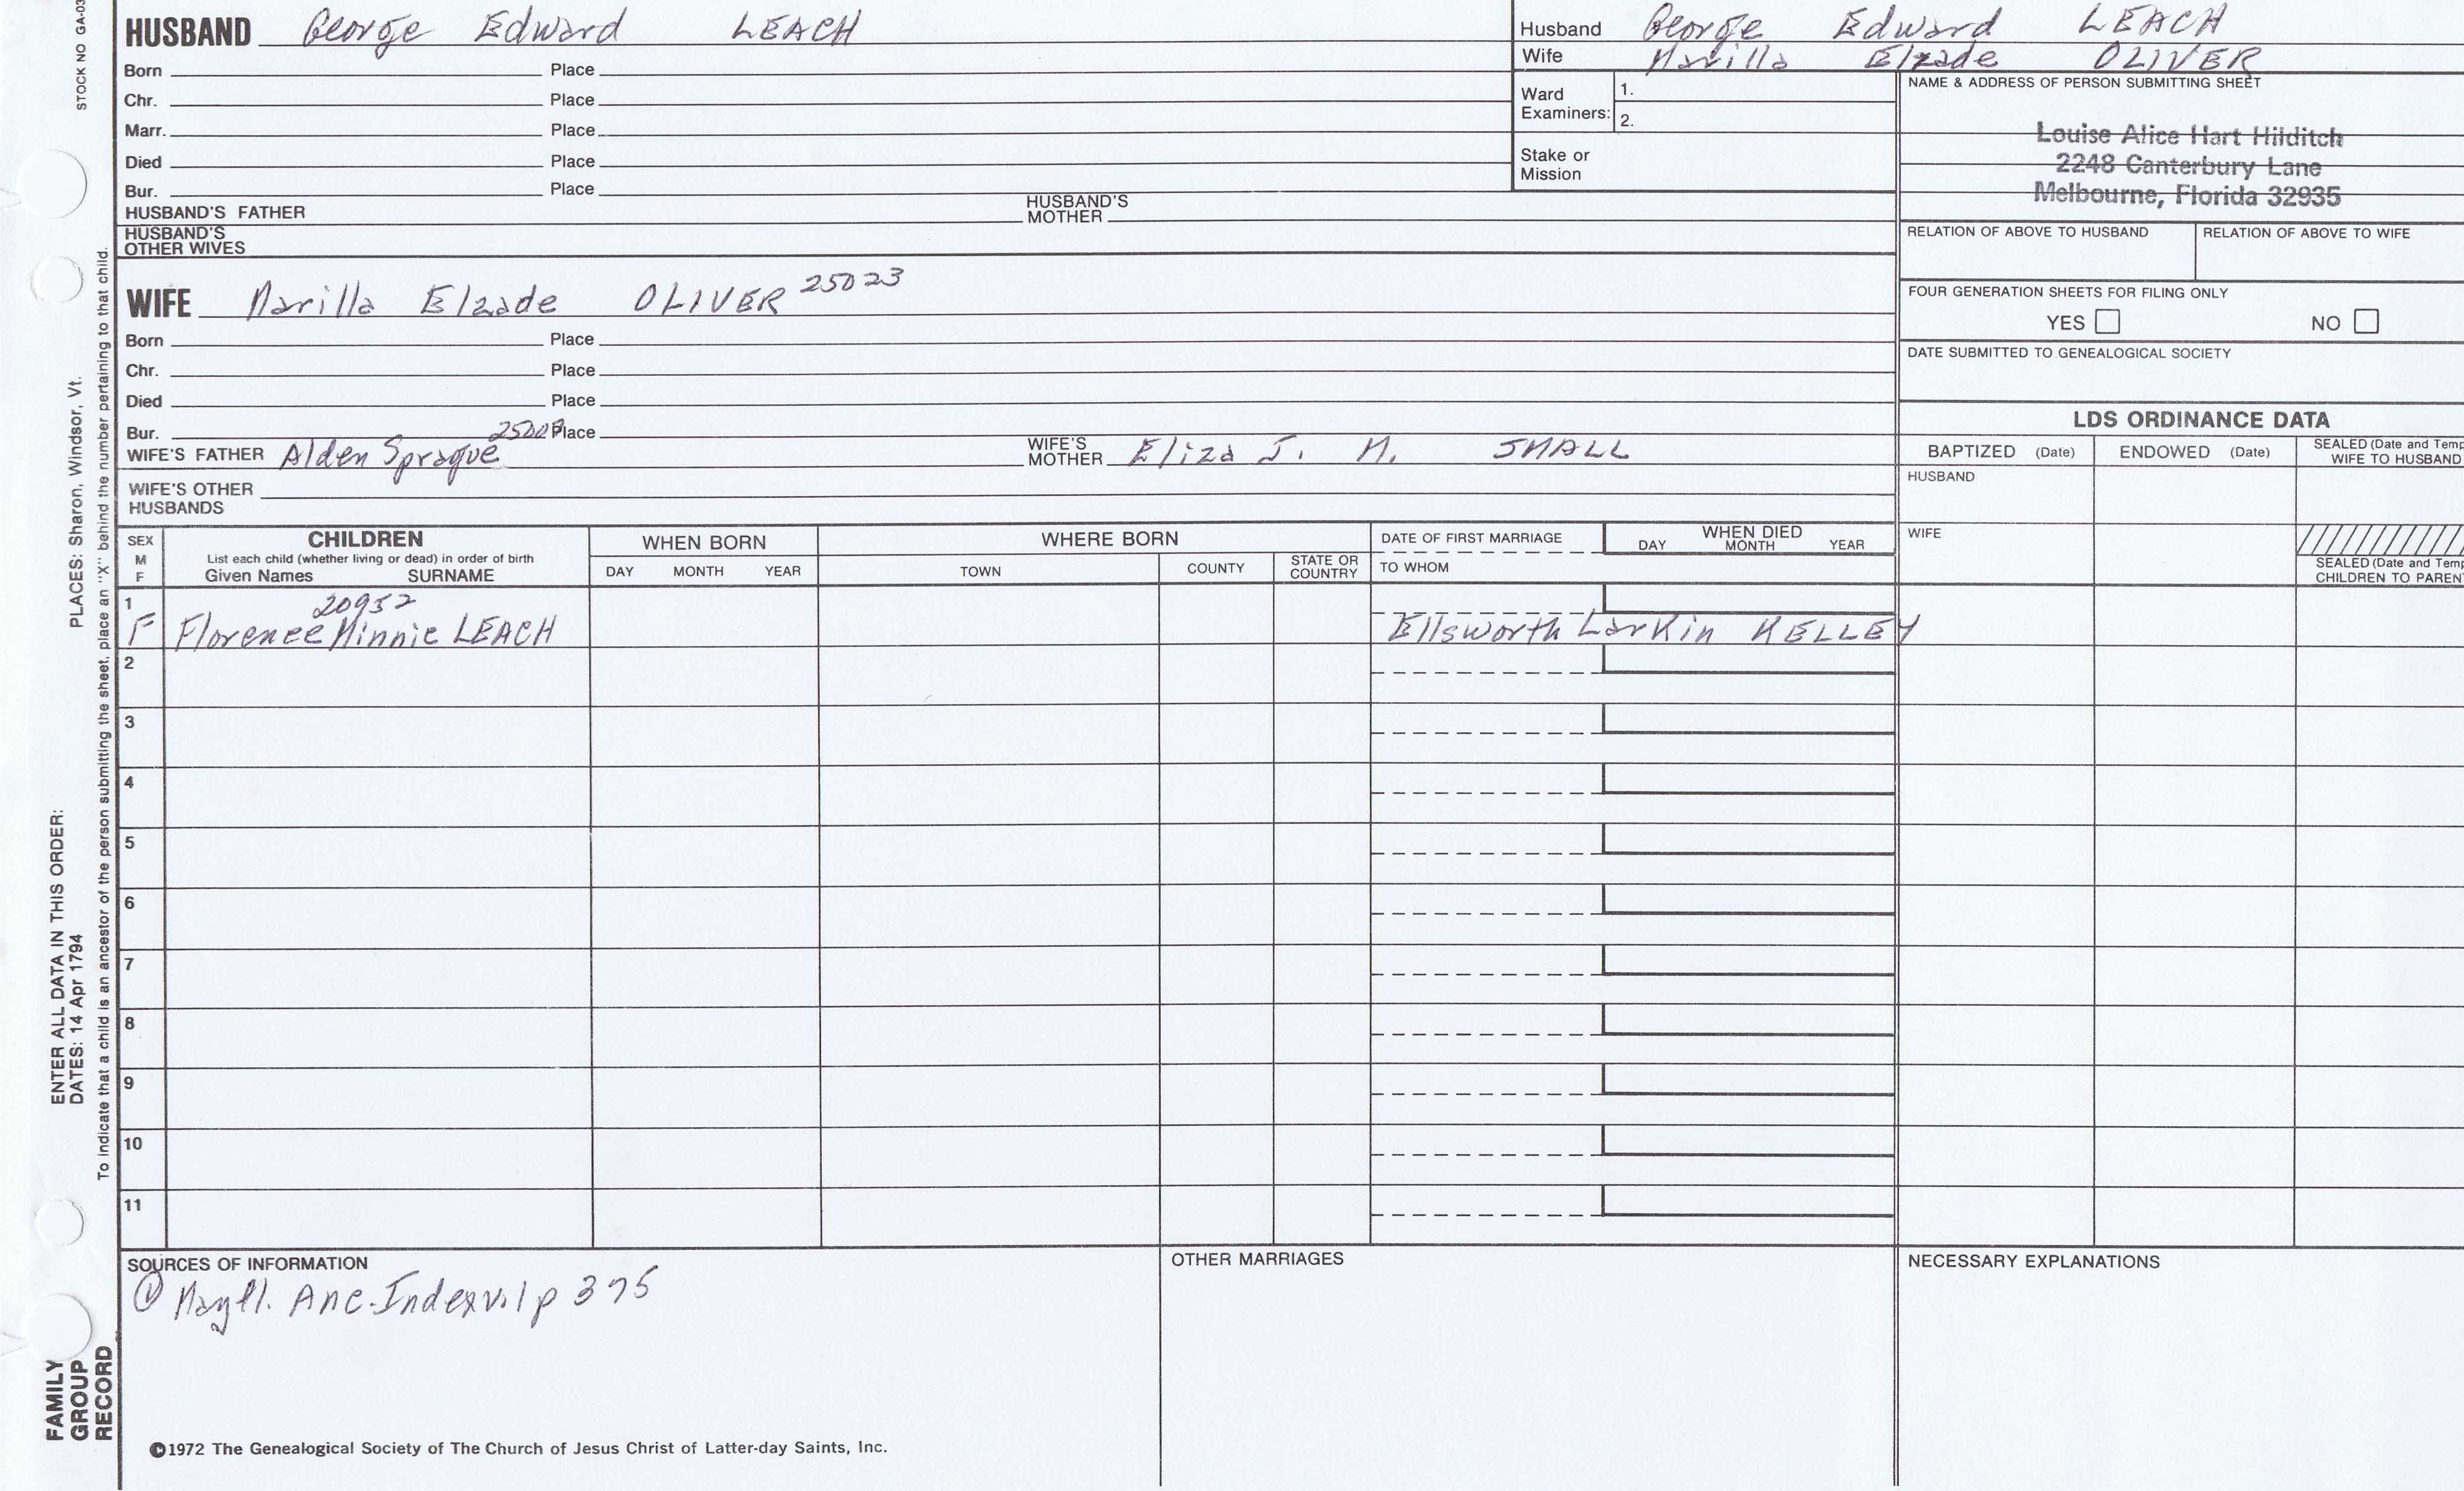 STOCK NO GA-03
HUSBAND George Edward LEACH
Born Place
Chr. Place
Marr. Place
Died Place
Bur. Place
HUSBAND'S FATHER HUSBAND'S MOTHER
HUSBAND'S OTHER WIVES
Husband George Edward LEACH
Wife Marilla Elzade OLIVER
Ward Examiners: 1.
2.
Stake or Mission
NAME & ADDRESS OF PERSON SUBMITTING SHEET
Louise Alice Hart Hilditch
2248 Canterbury Lane
Melbourne, Florida 32935
RELATION OF ABOVE TO HUSBAND RELATION OF ABOVE TO WIFE
FOUR GENERATION SHEETS FOR FILING ONLY
YES NO
DATE SUBMITTED TO GENEALOGICAL SOCIETY
WIFE Marilla Elzade OLIVER 25023
Born Place
Chr. Place
Died Place
Bur. Place
WIFE'S FATHER Alden Sprague WIFE'S MOTHER Eliza J. M. SMALL
WIFE'S OTHER HUSBANDS
LDS ORDINANCE DATA
BAPTIZED (Date) ENDOWED (Date) SEALED (Date and Temp
WIFE TO HUSBAND
HUSBAND
WIFE
SEALED (Date and Temp
CHILDREN TO PAREN
SEX M F
CHILDREN
List each child (whether living or dead) in order of birth
Given Names SURNAME
WHEN BORN
DAY MONTH YEAR
WHERE BORN
TOWN COUNTY STATE OR COUNTRY
DATE OF FIRST MARRIAGE
TO WHOM
WHEN DIED
DAY MONTH YEAR
1 20952
F Florence Minnie LEACH Ellsworth Larkin KELLEY
2
3
4
5
6
7
8
9
10
11
SOURCES OF INFORMATION
① Mayfl. Anc. Index v.1 p 375
OTHER MARRIAGES
NECESSARY EXPLANATIONS
©1972 The Genealogical Society of The Church of Jesus Christ of Latter-day Saints, Inc.
FAMILY GROUP RECORD
ENTER ALL DATA IN THIS ORDER:
DATES: 14 Apr 1794 PLACES: Sharon, Windsor, Vt.
To indicate that a child is an ancestor of the person submitting the sheet, place an "X" behind the number pertaining to that child.